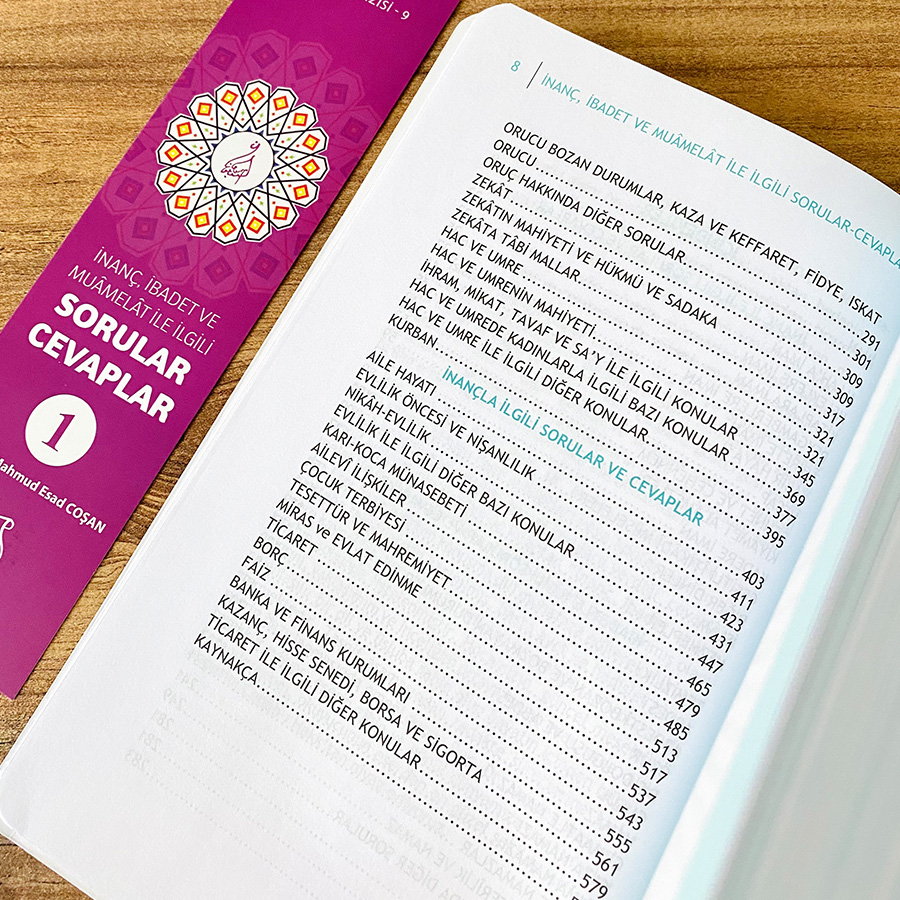 ZİSİ - 9
İNANÇ, İBADET VE
MUÂMELÂT İLE İLGİLİ
SORULAR
CEVAPLAR
1
Mahmud Esad COŞAN
8 İNANÇ, İBADET VE MUÂMELÂT İLE İLGİLİ SORULAR-CEVAPLA
ORUCU BOZAN DURUMLAR, KAZA VE KEFFARET, FİDYE, ISKAT
ORUCU 291
ORUÇ HAKKINDA DİĞER SORULAR 301
ZEKÂT 309
ZEKÂTIN MAHİYETİ VE HÜKMÜ VE SADAKA 309
ZEKÂTA TÂBİ MALLAR 317
HAC VE UMRE 321
HAC VE UMRENİN MAHİYETİ 321
İHRAM, MİKAT, TAVAF VE SA'Y İLE İLGİLİ KONULAR 345
HAC VE UMREDE KADINLARLA İLGİLİ BAZI KONULAR 369
HAC VE UMRE İLE İLGİLİ DİĞER KONULAR 377
KURBAN 395
İNANÇLA İLGİLİ SORULAR VE CEVAPLAR
AİLE HAYATI 403
EVLİLİK ÖNCESİ VE NİŞANLILIK 411
NİKÂH-EVLİLİK 423
EVLİLİK İLE İLGİLİ DİĞER BAZI KONULAR 431
KARI-KOCA MÜNASEBETİ 447
AİLEVİ İLİŞKİLER 465
ÇOCUK TERBİYESİ 479
TESETTÜR VE MAHREMİYET 485
MİRAS ve EVLAT EDİNME 513
TİCARET 517
BORÇ 537
FAİZ 543
BANKA VE FİNANS KURUMLARI 555
KAZANÇ, HİSSE SENEDİ, BORSA VE SİGORTA 561
TİCARET İLE İLGİLİ DİĞER KONULAR 579
KAYNAKÇA